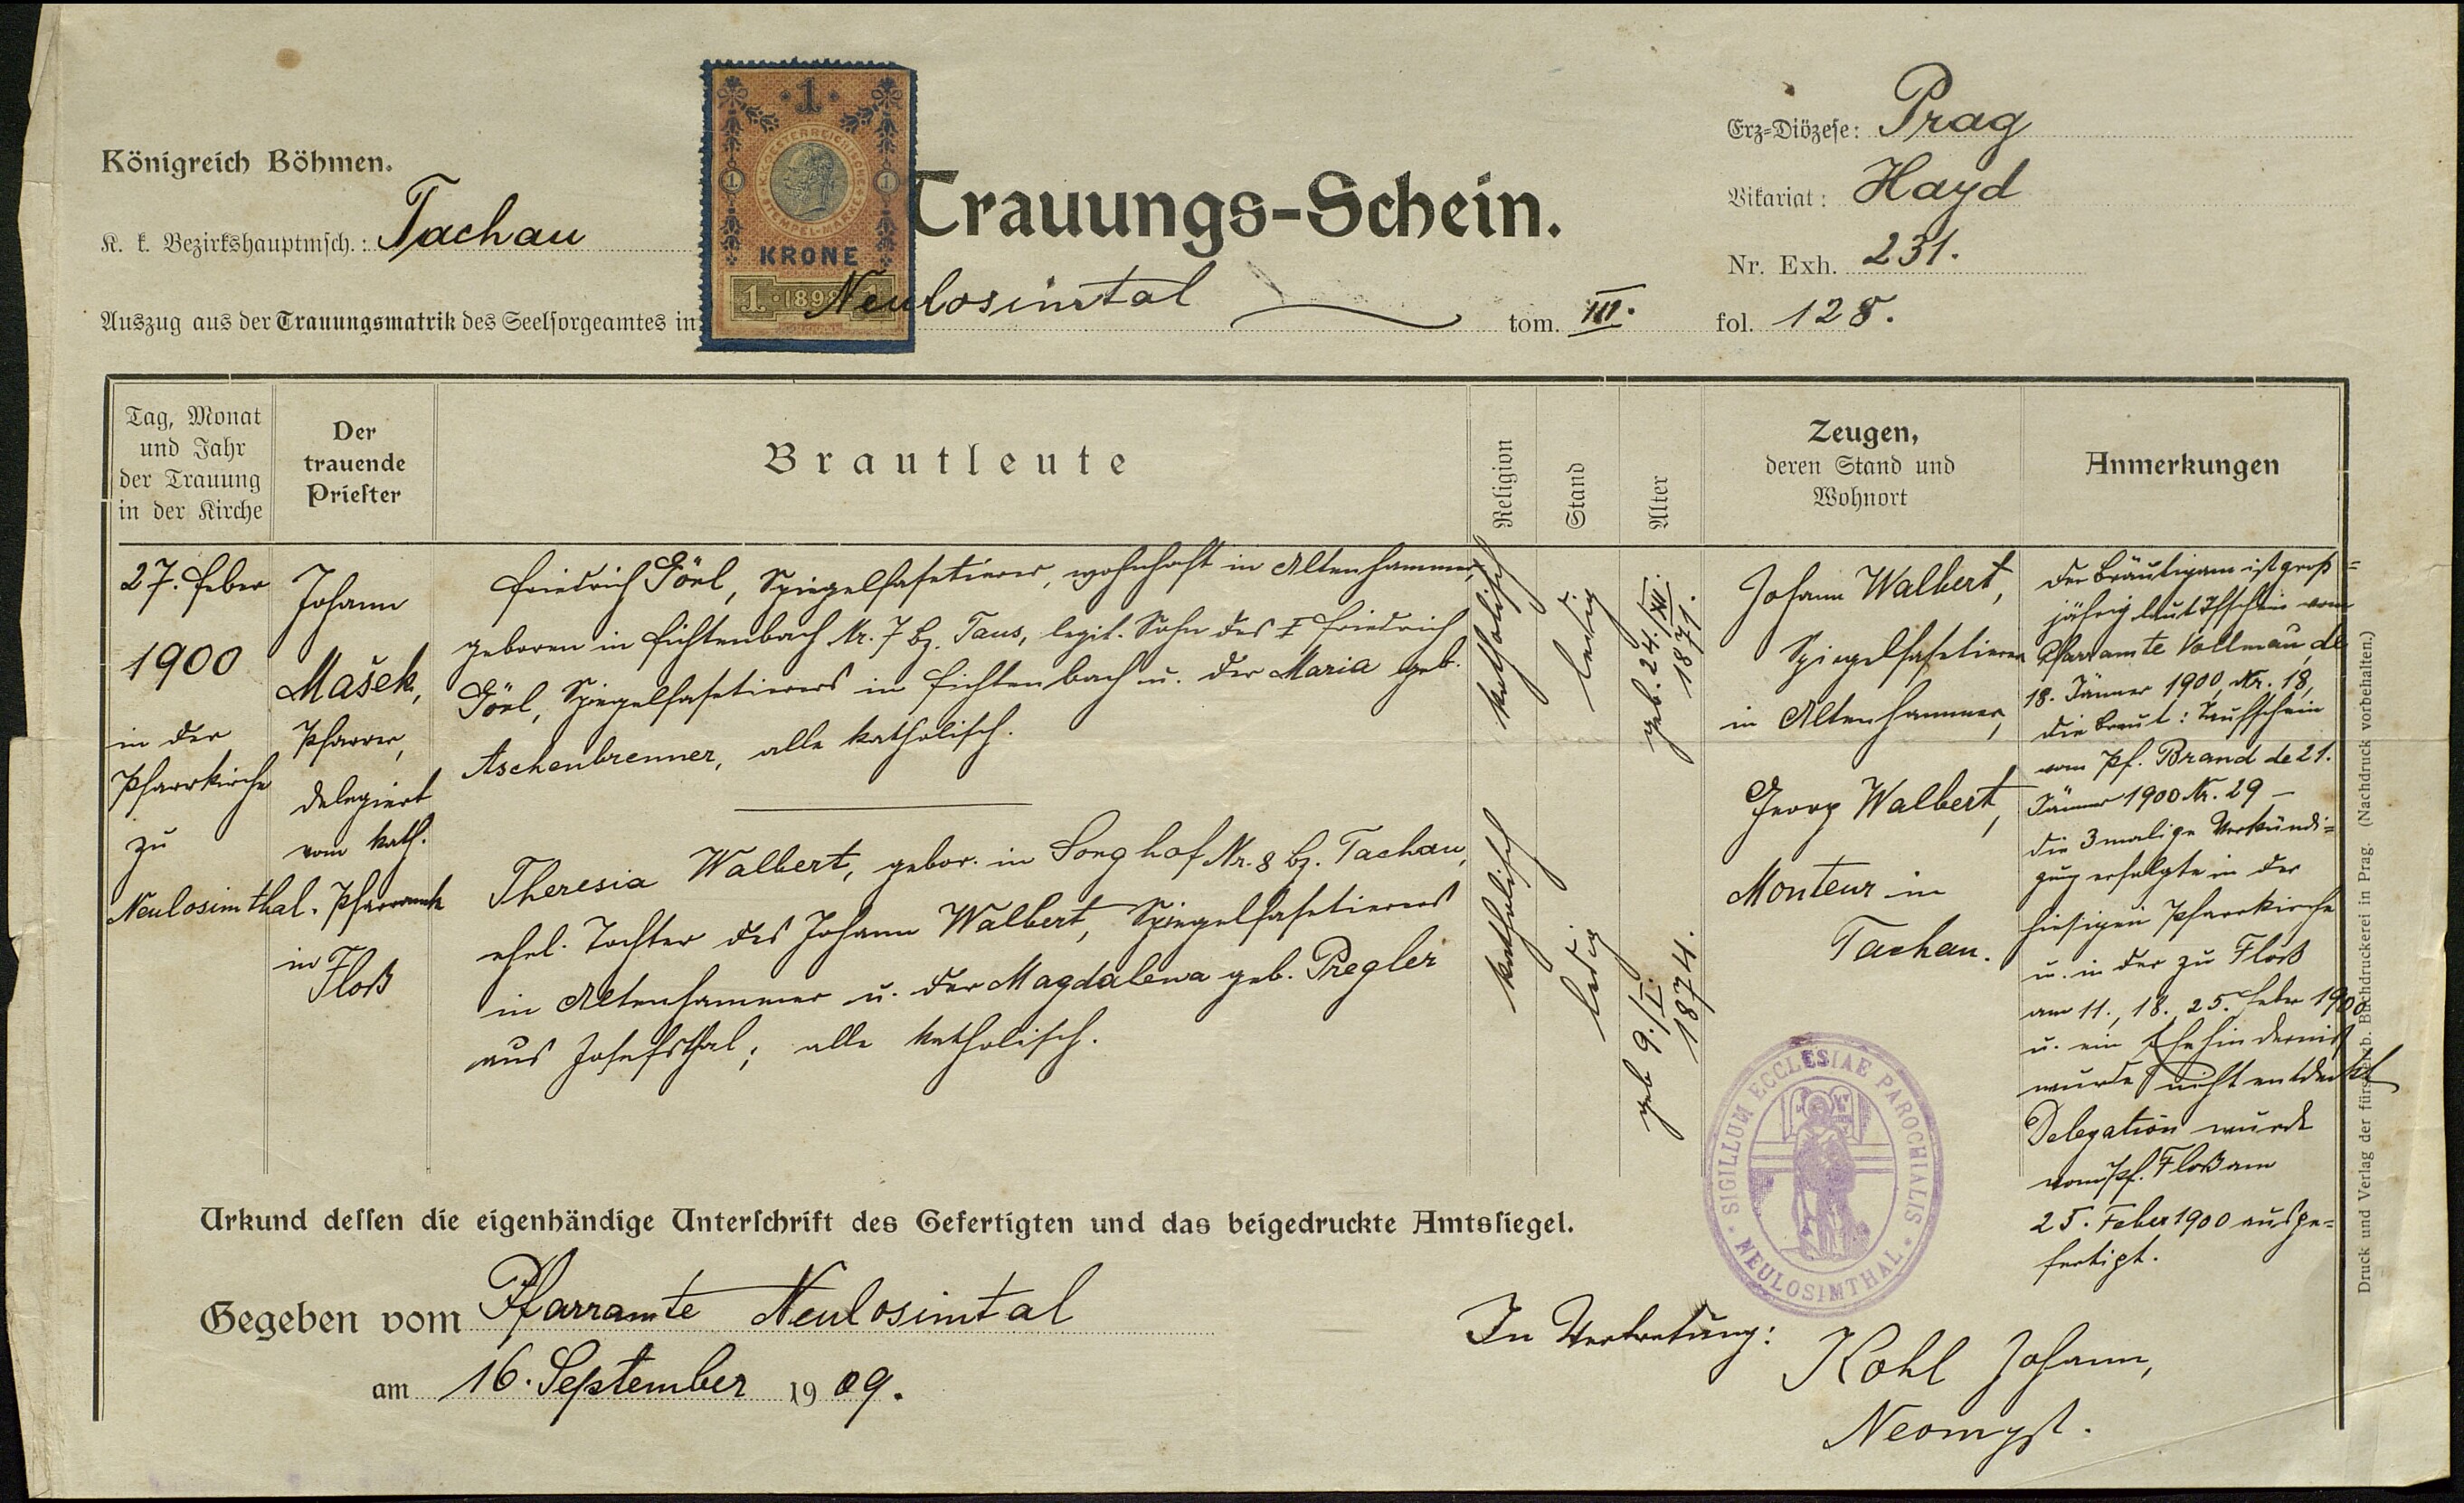 Königreich Böhmen.
K. k. Bezirkshauptmsch.: Tachau
1
K.K. OESTERREICHISCHE STEMPEL-MARKE
1 1
KRONE
1 · 1898 · 1
Trauungs-Schein.
Erz-Diözese: Prag
Vikariat: Hayd
Nr. Exh. 231.
Auszug aus der Trauungsmatrik des Seelsorgeamtes in Neulosimtal tom. III. fol. 128.
Tag, Monat
und Jahr
der Trauung
in der Kirche
27. Feber
1900
in der
Pfarrkirche
zu
Neulosimthal.
Der
trauende
Priester
Johann
Mašek,
Pfarrer,
delegiert
vom kath.
Pfarramte
in
Floß
Brautleute
Friedrich Görl, Spiegelfasetierer, wohnhaft in Altenhammer,
geboren in Fichtenbach Nr. 7 Bz. Taus, legit. Sohn des † Friedrich
Görl, Spiegelfasetierers in Fichtenbach u. der Maria geb.
Aschenbrenner, alle katholisch.
Theresia Walbert, gebor. in Sorghof Nr. 8 Bz. Tachau,
ehel. Tochter des Johann Walbert, Spiegelfasetierers
in Altenhammer u. der Magdalena geb. Pregler
aus Josefsthal; alle katholisch.
Religion
katholisch
katholisch
Stand
ledig
ledig
Alter
geb. 24./XII.
1871.
geb. 9./I.
1874.
Zeugen,
deren Stand und
Wohnort
Johann Walbert,
Spiegelfasetierer
in Altenhammer,
Georg Walbert,
Monteur in
Tachau.
Anmerkungen
Der Bräutigam ist groß=
jährig laut Tfschein vom
Pfarramte Vollmau, de
18. Jänner 1900, Nr. 18,
die Braut: Taufschein
vom Pf. Brand de 21.
Jänner 1900 Nr. 29 –
die 3malige Verkündi=
gung erfolgte in der
hiesigen Pfarrkirche
u. in der zu Floß
am 11., 18., 25. Feber 1900
u. ein Ehehindernis
wurde nicht entdeckt
Delegation wurde
vom Pf. Floß am
25. Feber 1900 ausge=
fertigt.
SIGILLUM ECCLESIAE PAROCHIALIS · NEULOSIMTHAL ·
Urkund dessen die eigenhändige Unterschrift des Gefertigten und das beigedruckte Amtssiegel.
Gegeben vom Pfarramte Neulosimtal
am 16. September 1909.
In Vertretung:
Kohl Johann,
Neomyst.
Druck und Verlag der fürsterzb. Buchdruckerei in Prag. (Nachdruck vorbehalten.)